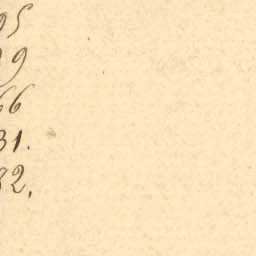 95
29
66
31.
82.